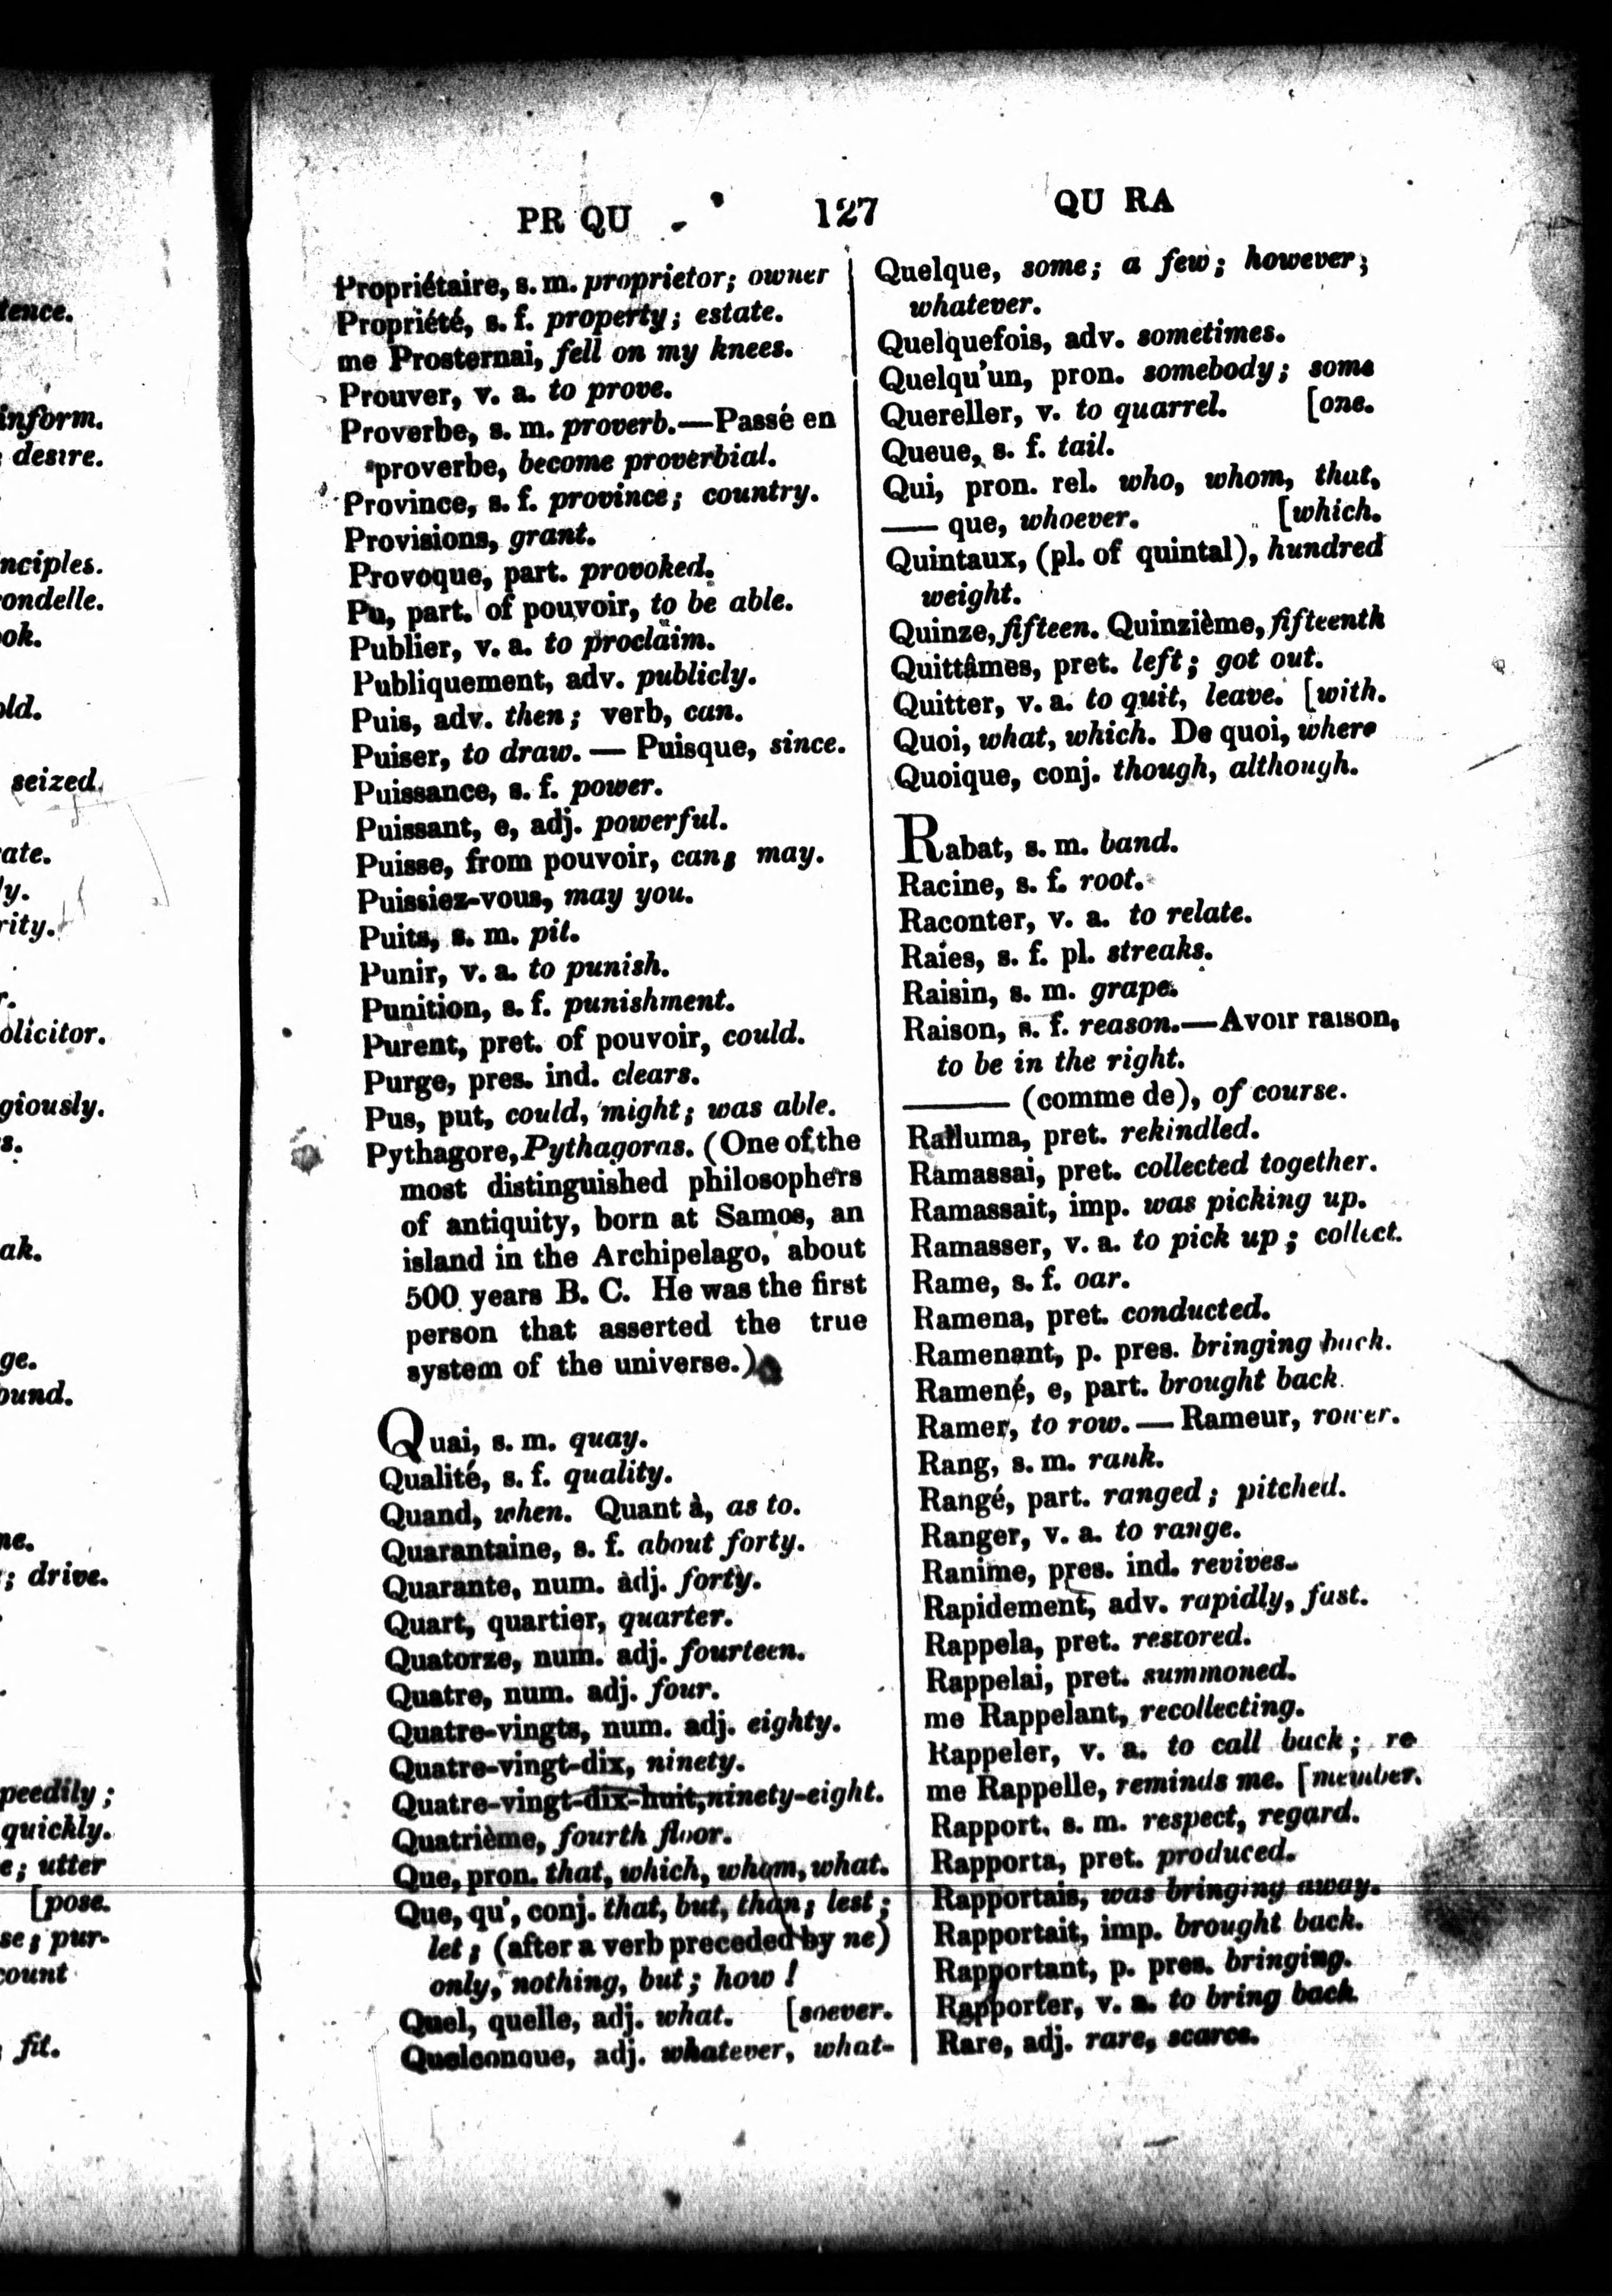 tence.
inform.
desire.
nciples.
ondelle.
ok.
old.
seized.
ate.
ly.
rity.
r.
olicitor.
giously.
s.
ak.
ge.
ound.
ne.
; drive.
peedily;
quickly.
e; utter
[pose.
se; pur-
count
fit.
PR QU
127
QU RA
Propriétaire, s. m. proprietor; owner
Propriété, s. f. property; estate.
me Prosternai, fell on my knees.
Prouver, v. a. to prove.
Proverbe, s. m. proverb.—Passé en
proverbe, become proverbial.
Province, s. f. province; country.
Provisions, grant.
Provoque, part. provoked.
Pu, part. of pouvoir, to be able.
Publier, v. a. to proclaim.
Publiquement, adv. publicly.
Puis, adv. then; verb, can.
Puiser, to draw. — Puisque, since.
Puissance, s. f. power.
Puissant, e, adj. powerful.
Puisse, from pouvoir, can; may.
Puissiez-vous, may you.
Puits, s. m. pit.
Punir, v. a. to punish.
Punition, s. f. punishment.
Purent, pret. of pouvoir, could.
Purge, pres. ind. clears.
Pus, put, could, might; was able.
Pythagore, Pythagoras. (One of the
most distinguished philosophers
of antiquity, born at Samos, an
island in the Archipelago, about
500 years B. C. He was the first
person that asserted the true
system of the universe.)
Quai, s. m. quay.
Qualité, s. f. quality.
Quand, when. Quant à, as to.
Quarantaine, s. f. about forty.
Quarante, num. adj. forty.
Quart, quartier, quarter.
Quatorze, num. adj. fourteen.
Quatre, num. adj. four.
Quatre-vingts, num. adj. eighty.
Quatre-vingt-dix, ninety.
Quatre-vingt-dix-huit, ninety-eight.
Quatrième, fourth floor.
Que, pron. that, which, whom, what.
Que, qu', conj. that, but, than; lest;
let; (after a verb preceded by ne)
only, nothing, but; how!
Quel, quelle, adj. what. [soever.
Quelconque, adj. whatever, what-
Quelque, some; a few; however;
whatever.
Quelquefois, adv. sometimes.
Quelqu'un, pron. somebody; some
Quereller, v. to quarrel. [one.
Queue, s. f. tail.
Qui, pron. rel. who, whom, that,
—— que, whoever. [which.
Quintaux, (pl. of quintal), hundred
weight.
Quinze, fifteen. Quinzième, fifteenth
Quittâmes, pret. left; got out.
Quitter, v. a. to quit, leave. [with.
Quoi, what, which. De quoi, where
Quoique, conj. though, although.
Rabat, s. m. band.
Racine, s. f. root.
Raconter, v. a. to relate.
Raies, s. f. pl. streaks.
Raisin, s. m. grape.
Raison, s. f. reason.—Avoir raison,
to be in the right.
——— (comme de), of course.
Ralluma, pret. rekindled.
Ramassai, pret. collected together.
Ramassait, imp. was picking up.
Ramasser, v. a. to pick up; collect.
Rame, s. f. oar.
Ramena, pret. conducted.
Ramenant, p. pres. bringing back.
Ramené, e, part. brought back.
Ramer, to row. — Rameur, rower.
Rang, s. m. rank.
Rangé, part. ranged; pitched.
Ranger, v. a. to range.
Ranime, pres. ind. revives.
Rapidement, adv. rapidly, fast.
Rappela, pret. restored.
Rappelai, pret. summoned.
me Rappelant, recollecting.
Rappeler, v. a. to call back; re
me Rappelle, reminds me. [member.
Rapport, s. m. respect, regard.
Rapporta, pret. produced.
Rapportais, was bringing away.
Rapportait, imp. brought back.
Rapportant, p. pres. bringing.
Rapporter, v. a. to bring back.
Rare, adj. rare, scarce.